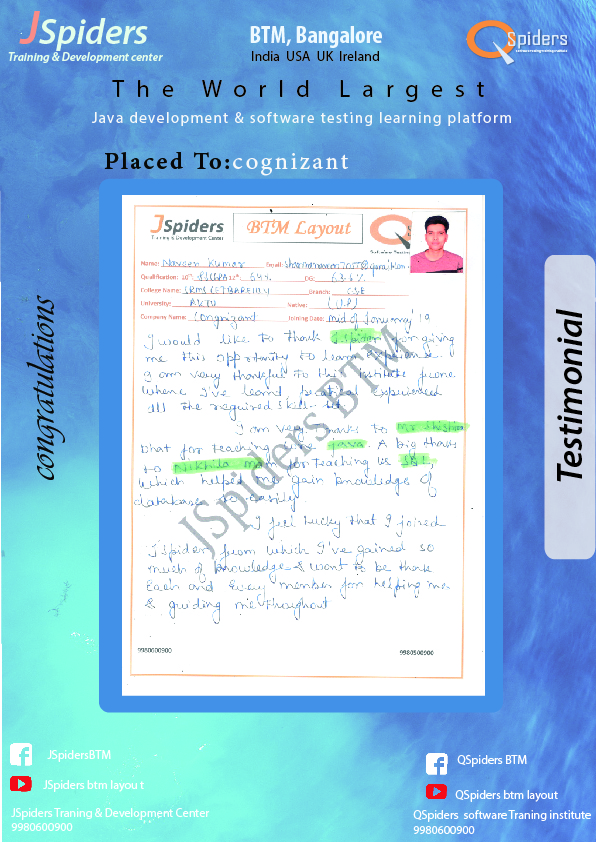 JSpiders
Training & Development center
BTM, Bangalore
India USA UK Ireland
QSpiders
The World Largest
Java development & software testing learning platform
Placed To:cognizant
JSpiders
Training & Development Center
BTM Layout
Name: Naveen Kumar Email:
Qualification: 10th 12th 64% DG: 63.6%
College Name: Branch: CSE
University: AKTU Native: (U.P)
Company Name: Cognizant Joining Date: mid of January'19
I would like to thank Jspider for giving
me this opportunity to learn experience
I am very thankful to this institute from
where I've learnt practical experienced
all the required skill set.
I am very thanks to Mr
bhat for teaching core java. A big thanks
to Nikhila mam for teaching us SQL,
which helped me gain knowledge of
database so easily
I feel lucky that I joined
Jspider from which I've gained so
much of knowledge & want to be thank
Each and Every member for helping me
& guiding me throughout
9980600900
9980500900
JSpiders BTM
congratulations
Testimonial
JSpidersBTM
JSpiders btm layou t
JSpiders Traning & Development Center
9980600900
QSpiders BTM
QSpiders btm layout
QSpiders software Traning institute
9980600900